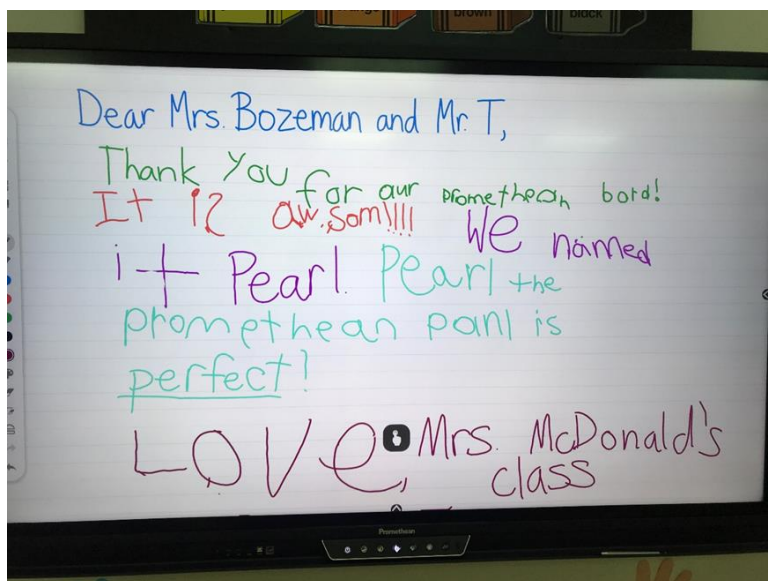 brown
black
Dear Mrs. Bozeman and Mr. T,
Thank You for our promethean bord!
It is aw.som!!!! We named
it Pearl. Pearl the
promethean panl is
perfect!
Love, Mrs. McDonald's
class
Promethean